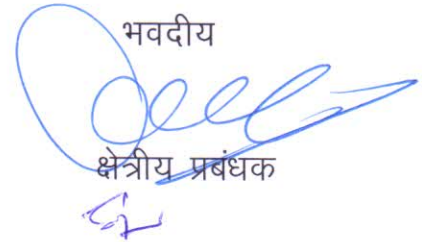 भवदीय
क्षेत्रीय प्रबंधक